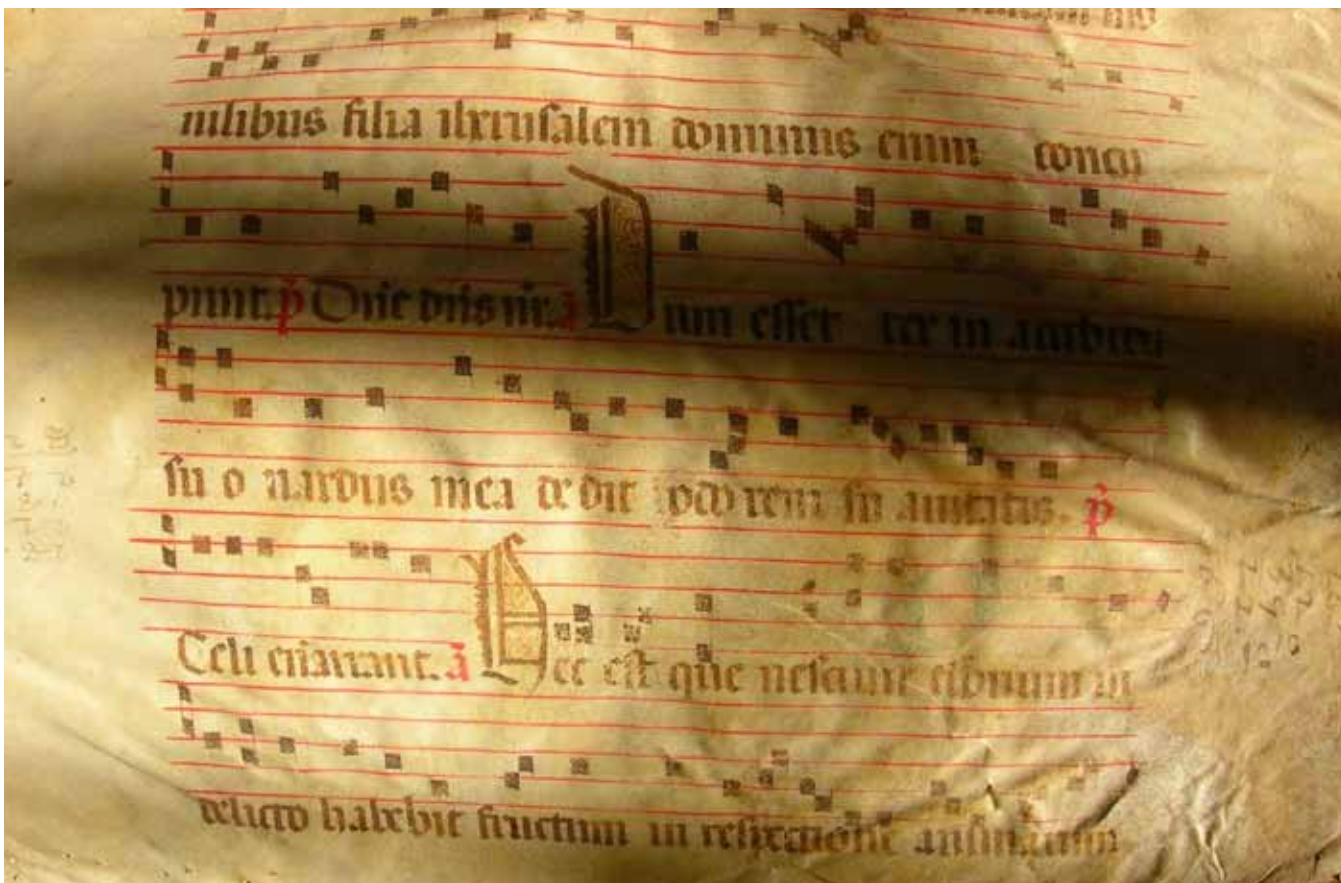 filia iherusalem dominus enim concu
piuit. p̄ Dñe dñs nr̄. ā Dum esset rex in accubitu
su o nardus mea dedit odorem su auitatis. p̄
Celi enarrant. ā Hec est que nesciuit thorum in
delicto habebit fructum in respectione animarum